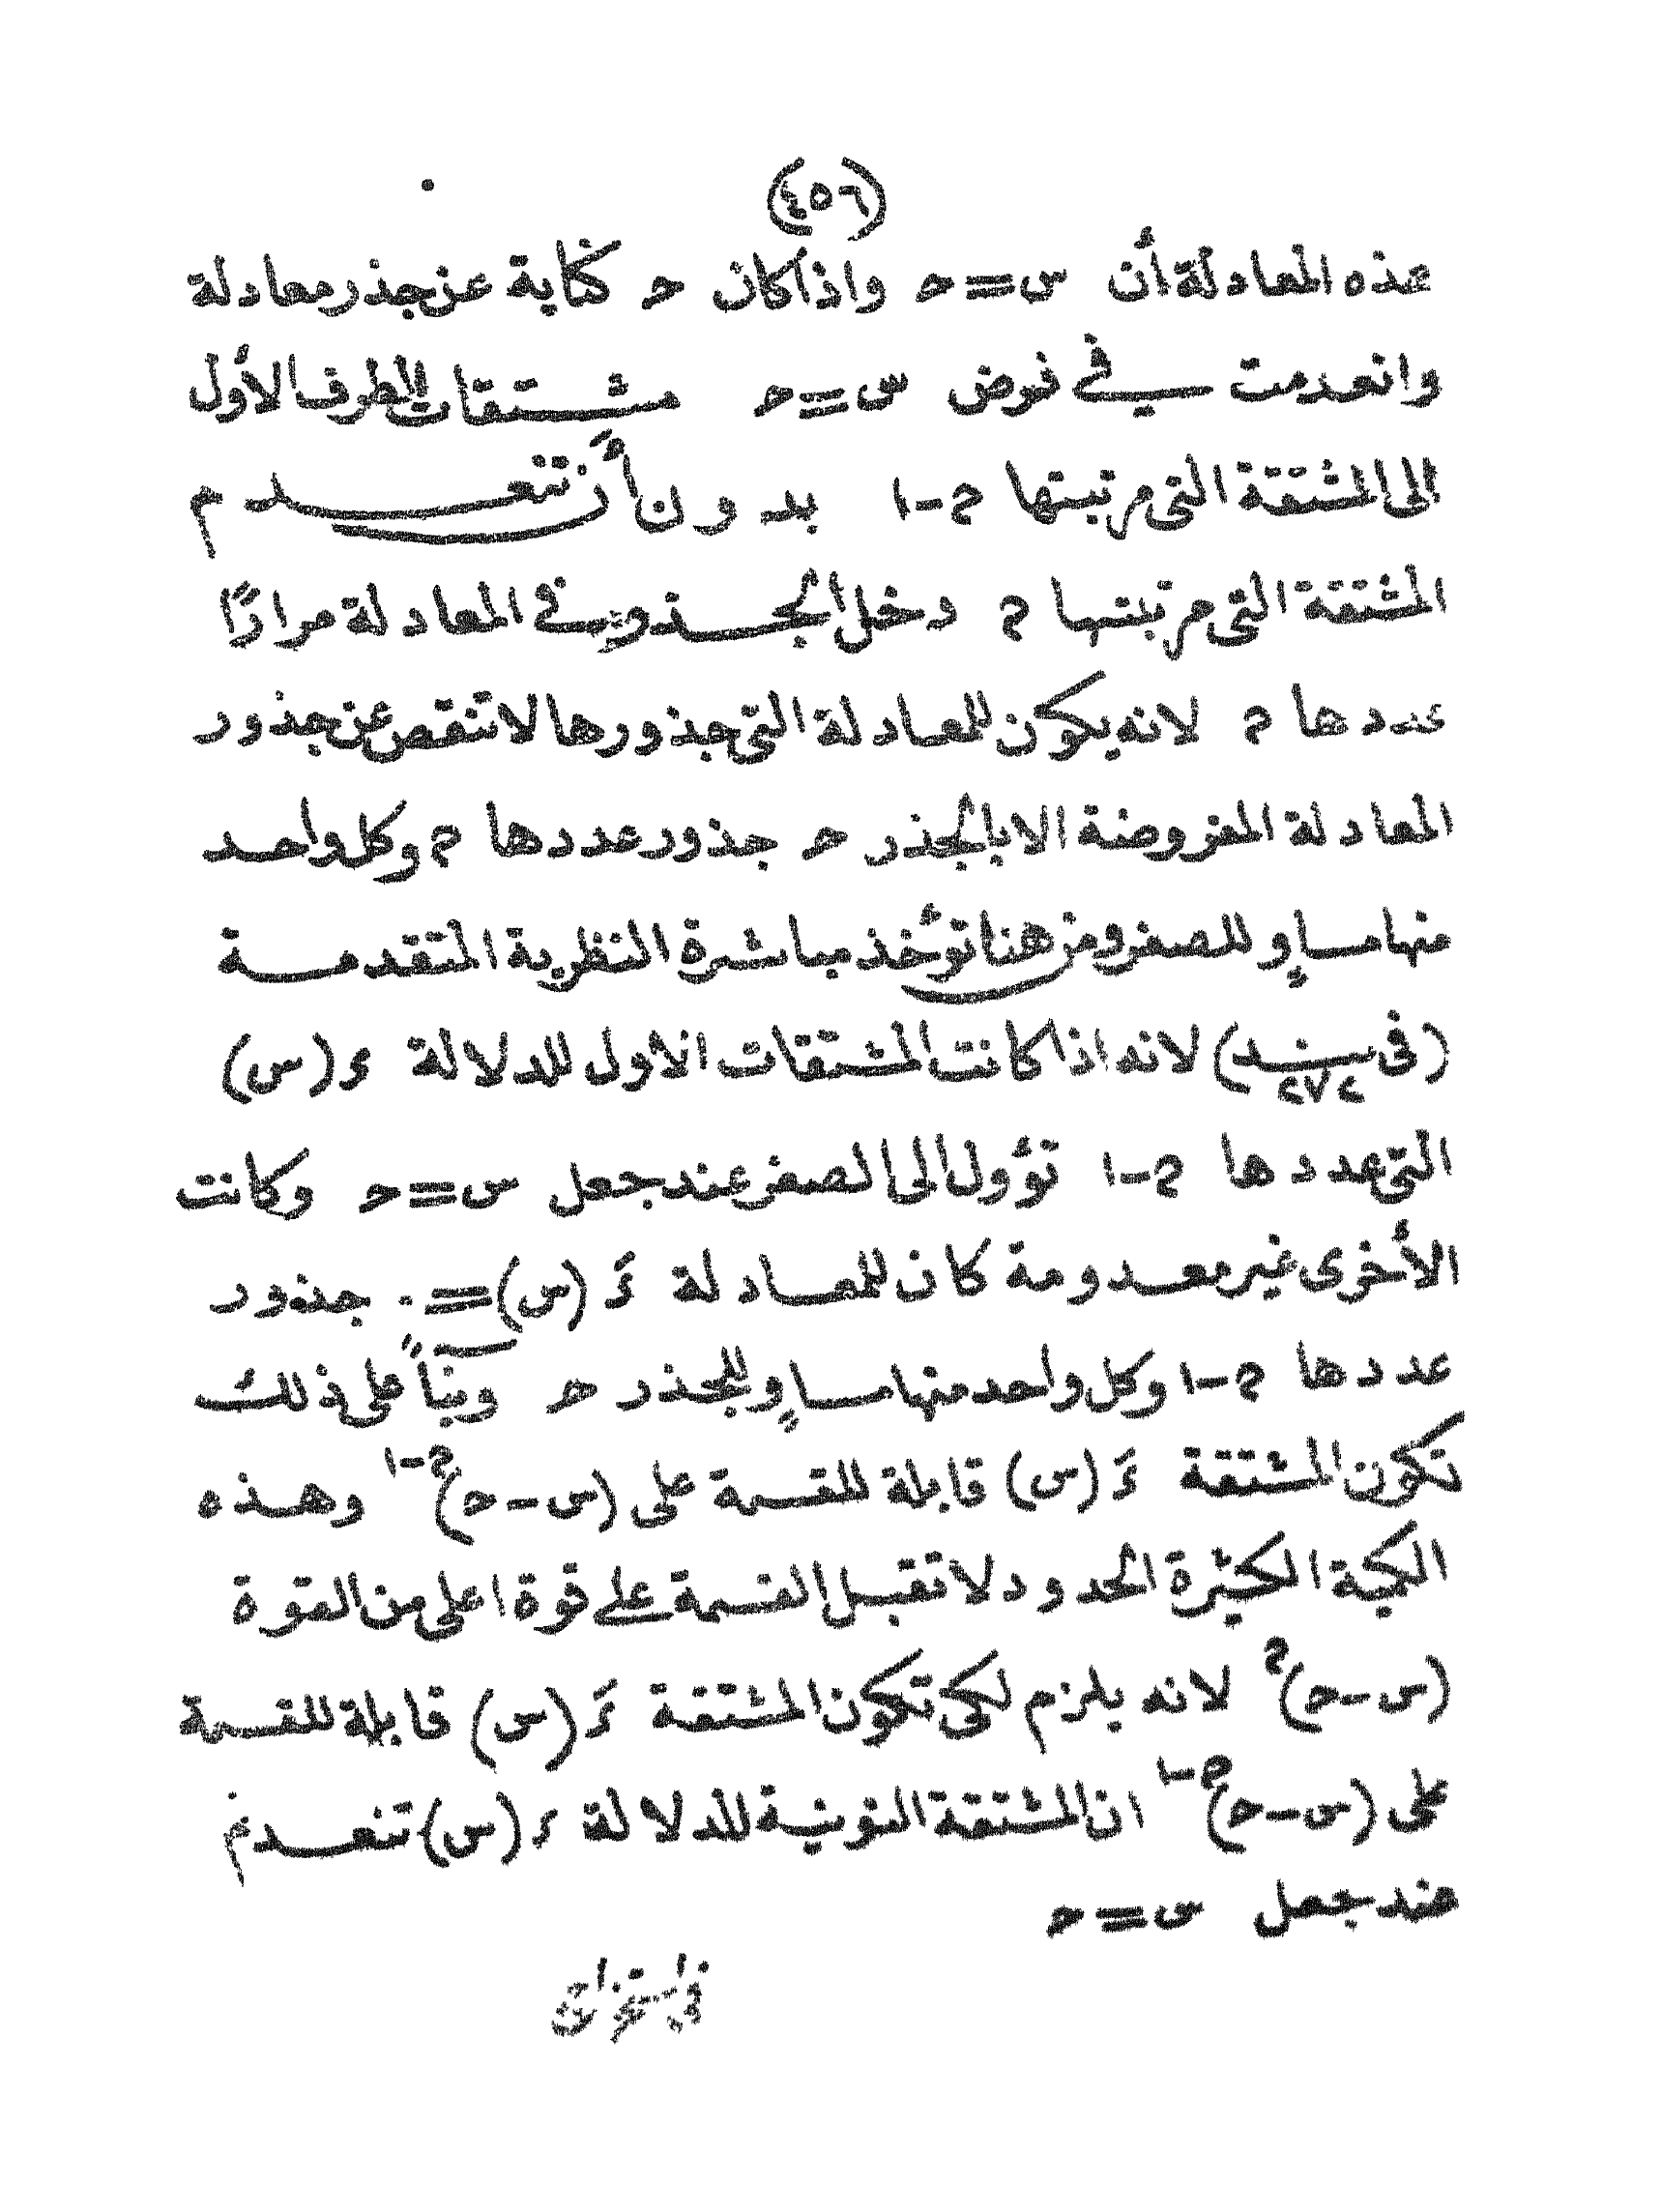 (٤٥٦)
هذه المعادلة أن س = ح واذا كان ح كناية عن جذر معادلة
وانعدمت فى فرض س = ح مشتقات الطرف الأول
الى المشتقة التى مرتبتها م-١ بدون أن تنعدم
المشتقة التى مرتبتها م دخل الجذر فى المعادلة مرارًا
عددها م لانه يكون للمعادلة التى جذورها لا تنقص عن جذور
المعادلة المفروضة الا بالجذر ح جذور عددها م وكل واحد
منها مساوٍ للصفر ومن هنا تؤخذ مباشرة النظرية المتقدمة
(فى بند ٢٧٢) لانه اذا كانت المشتقات الأول للدلالة د (س)
التى عددها م-١ تؤول الى الصفر عند جعل س = ح وكانت
الأخرى غير معدومة كان للمعادلة دَ (س) = ٠ جذور
عددها م-١ وكل واحد منها مساوٍ للجذر ح وبنآءً على ذلك
تكون المشتقة دَ (س) قابلة للقسمة على (س - ح)^م-١ وهذه
الكمية الكثيرة الحدود لا تقبل القسمة على قوة اعلى من القوة
(س - ح)^م لانه يلزم لكى تكون المشتقة دَ (س) قابلة للقسمة
على (س - ح)^م-١ ان المشتقة النونية للدلالة د (س) تنعدم
عند جعل س = ح